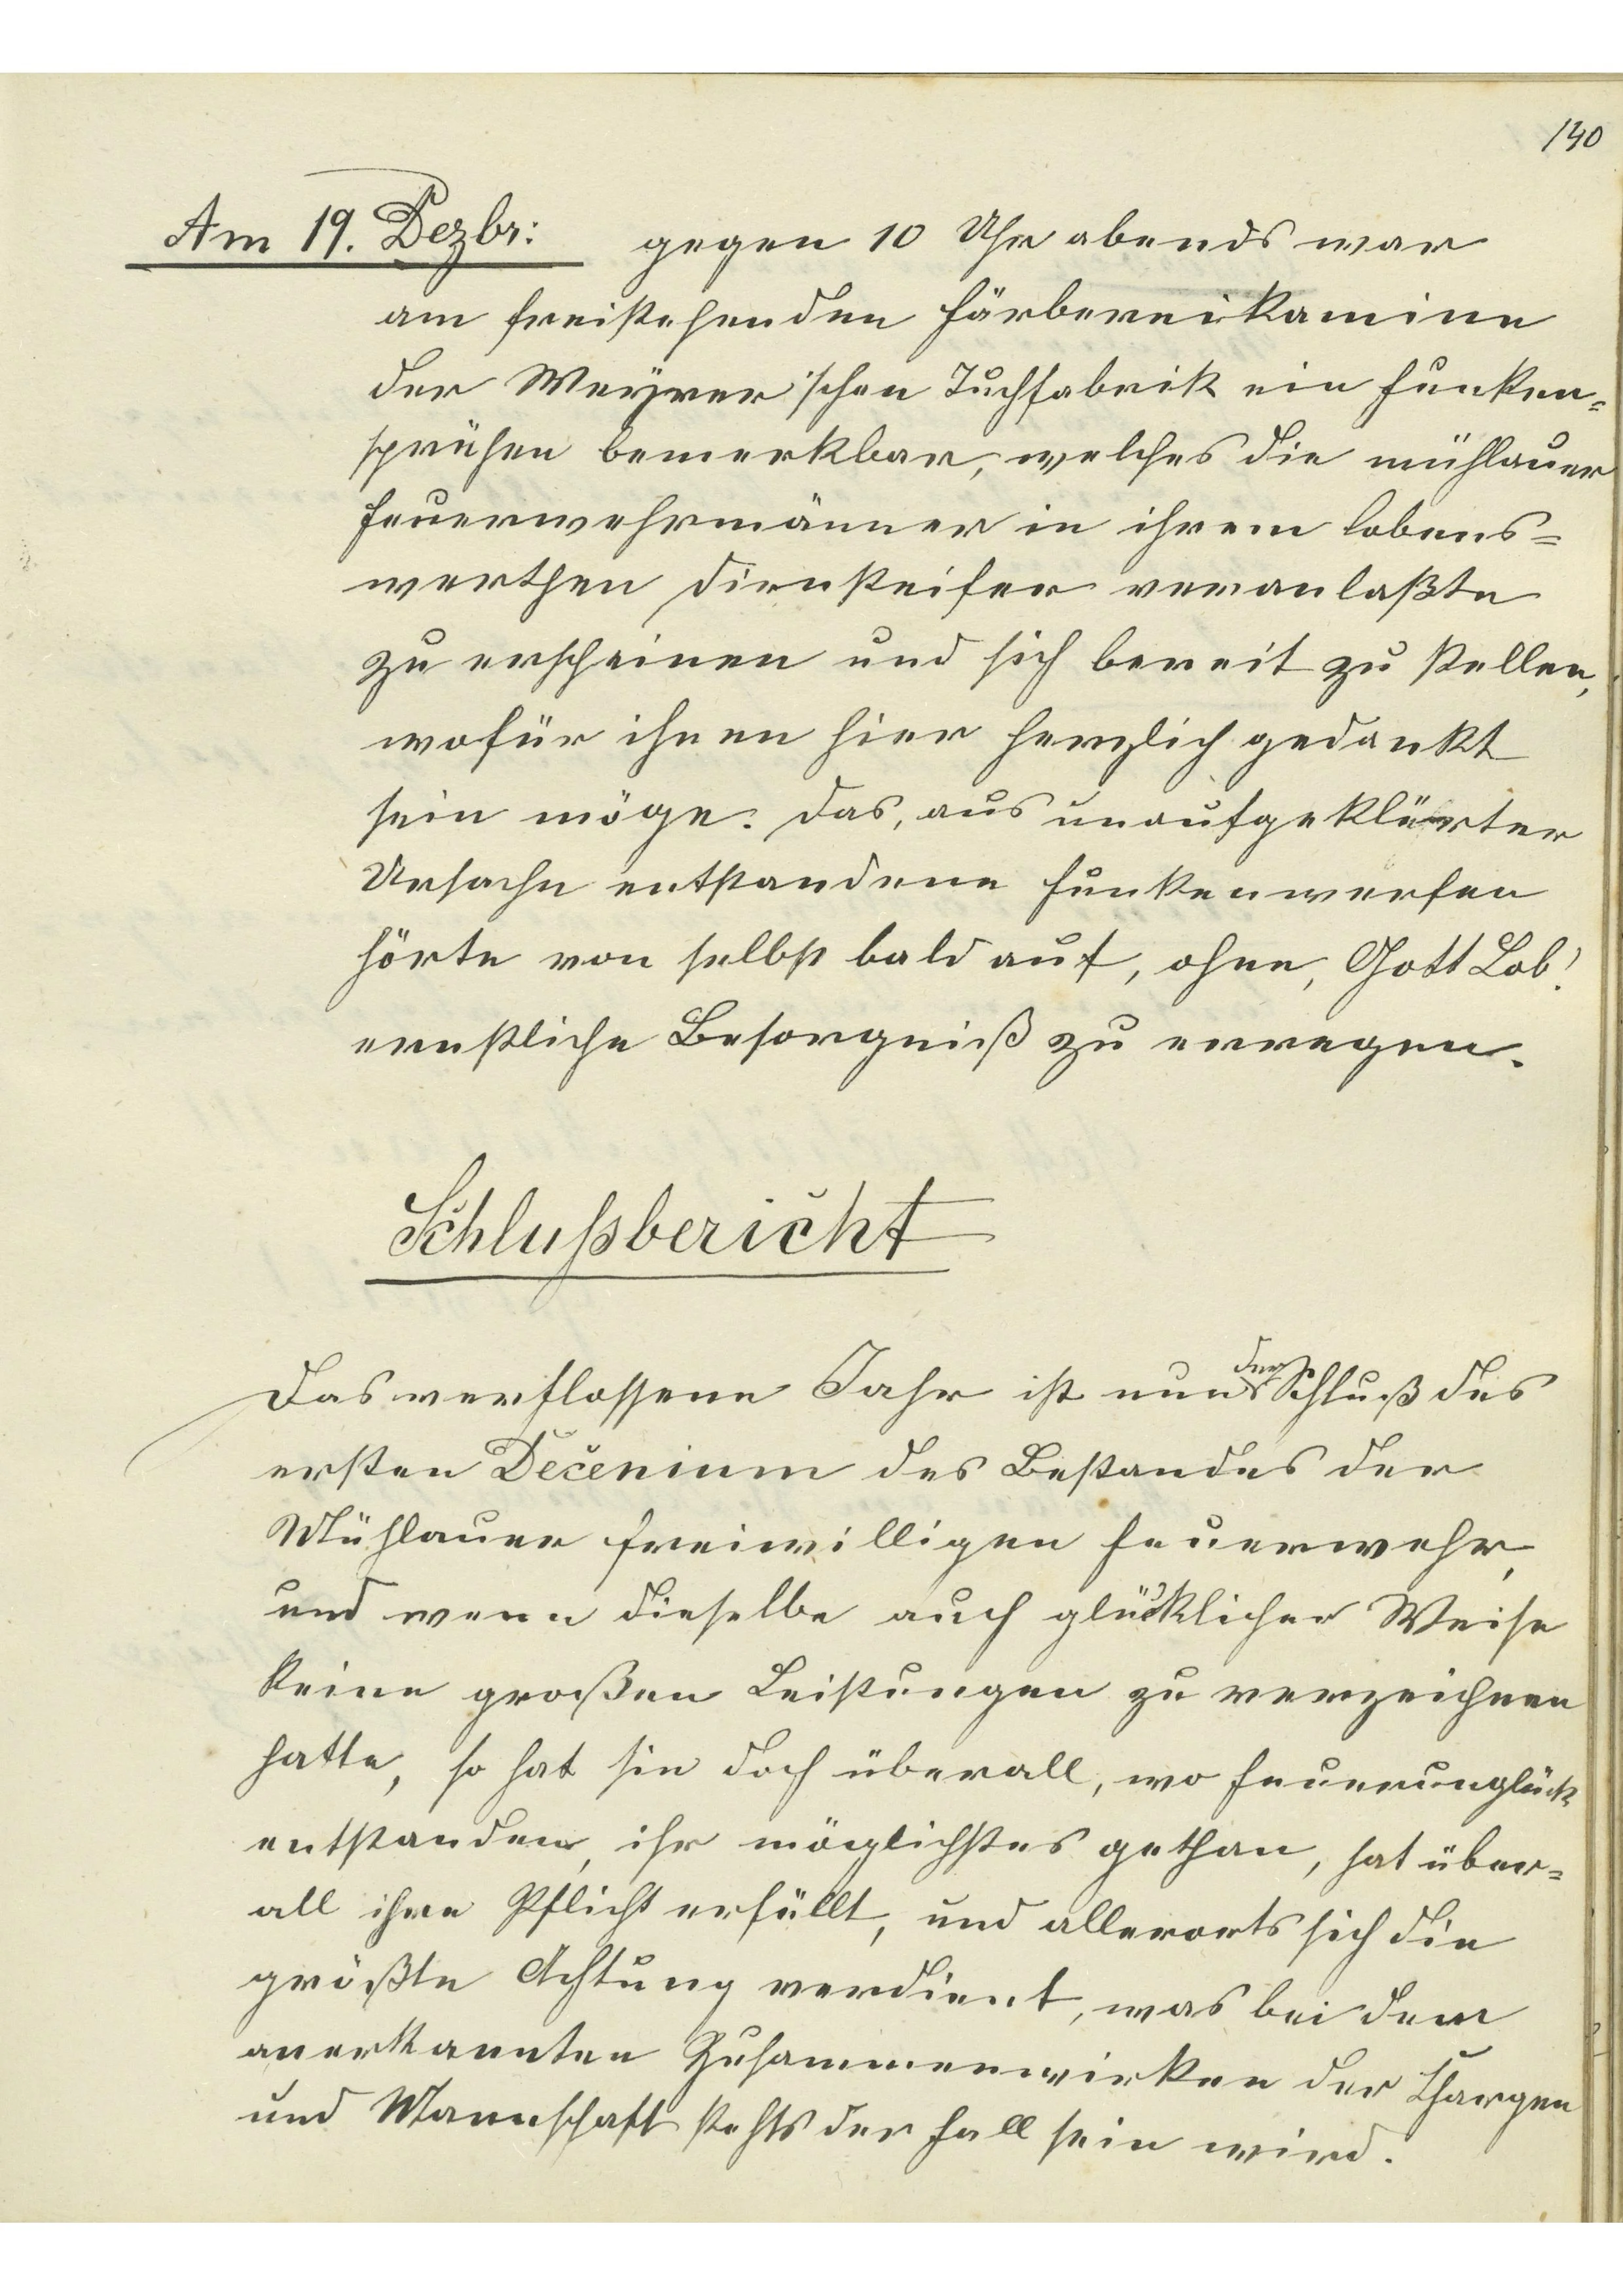 140
Am 19. Dezbr: gegen 10 Uhr abends war
am freistehenden Färbereikamine
der Weyrer'schen Tuchfabrik ein Funken=
sprühen bemerkbar, welches die mühlauer
Feuerwehrmänner in ihrem lobens=
werthen Diensteifer veranlaßte
zu erscheinen und sich bereit zu stellen,
wofür ihnen hier herzlich gedankt
sein möge. Das, aus unaufgeklärter
Ursache entstandene Funkenwerfen
hörte von selbst bald auf, ohne, Gott Lob!
ernstliche Besorgniß zu erregen.
Schlußbericht
Das verflossene Jahr ist nun der Schluß des
ersten Decenium des Bestandes der
Mühlauer freiwilligen Feuerwehr,
und wenn dieselbe auch glücklicher Weise
keine großen Leistungen zu verzeichnen
hatte, so hat sie doch überall, wo Feuerunglück
entstanden, ihr möglichstes gethan, hat über=
all ihre Pflicht erfüllt, und allerorts sich die
größte Achtung verdient, was bei dem
anerkannten Zusammenwirken der Chargen
und Mannschaft stehts der Fall sein wird.